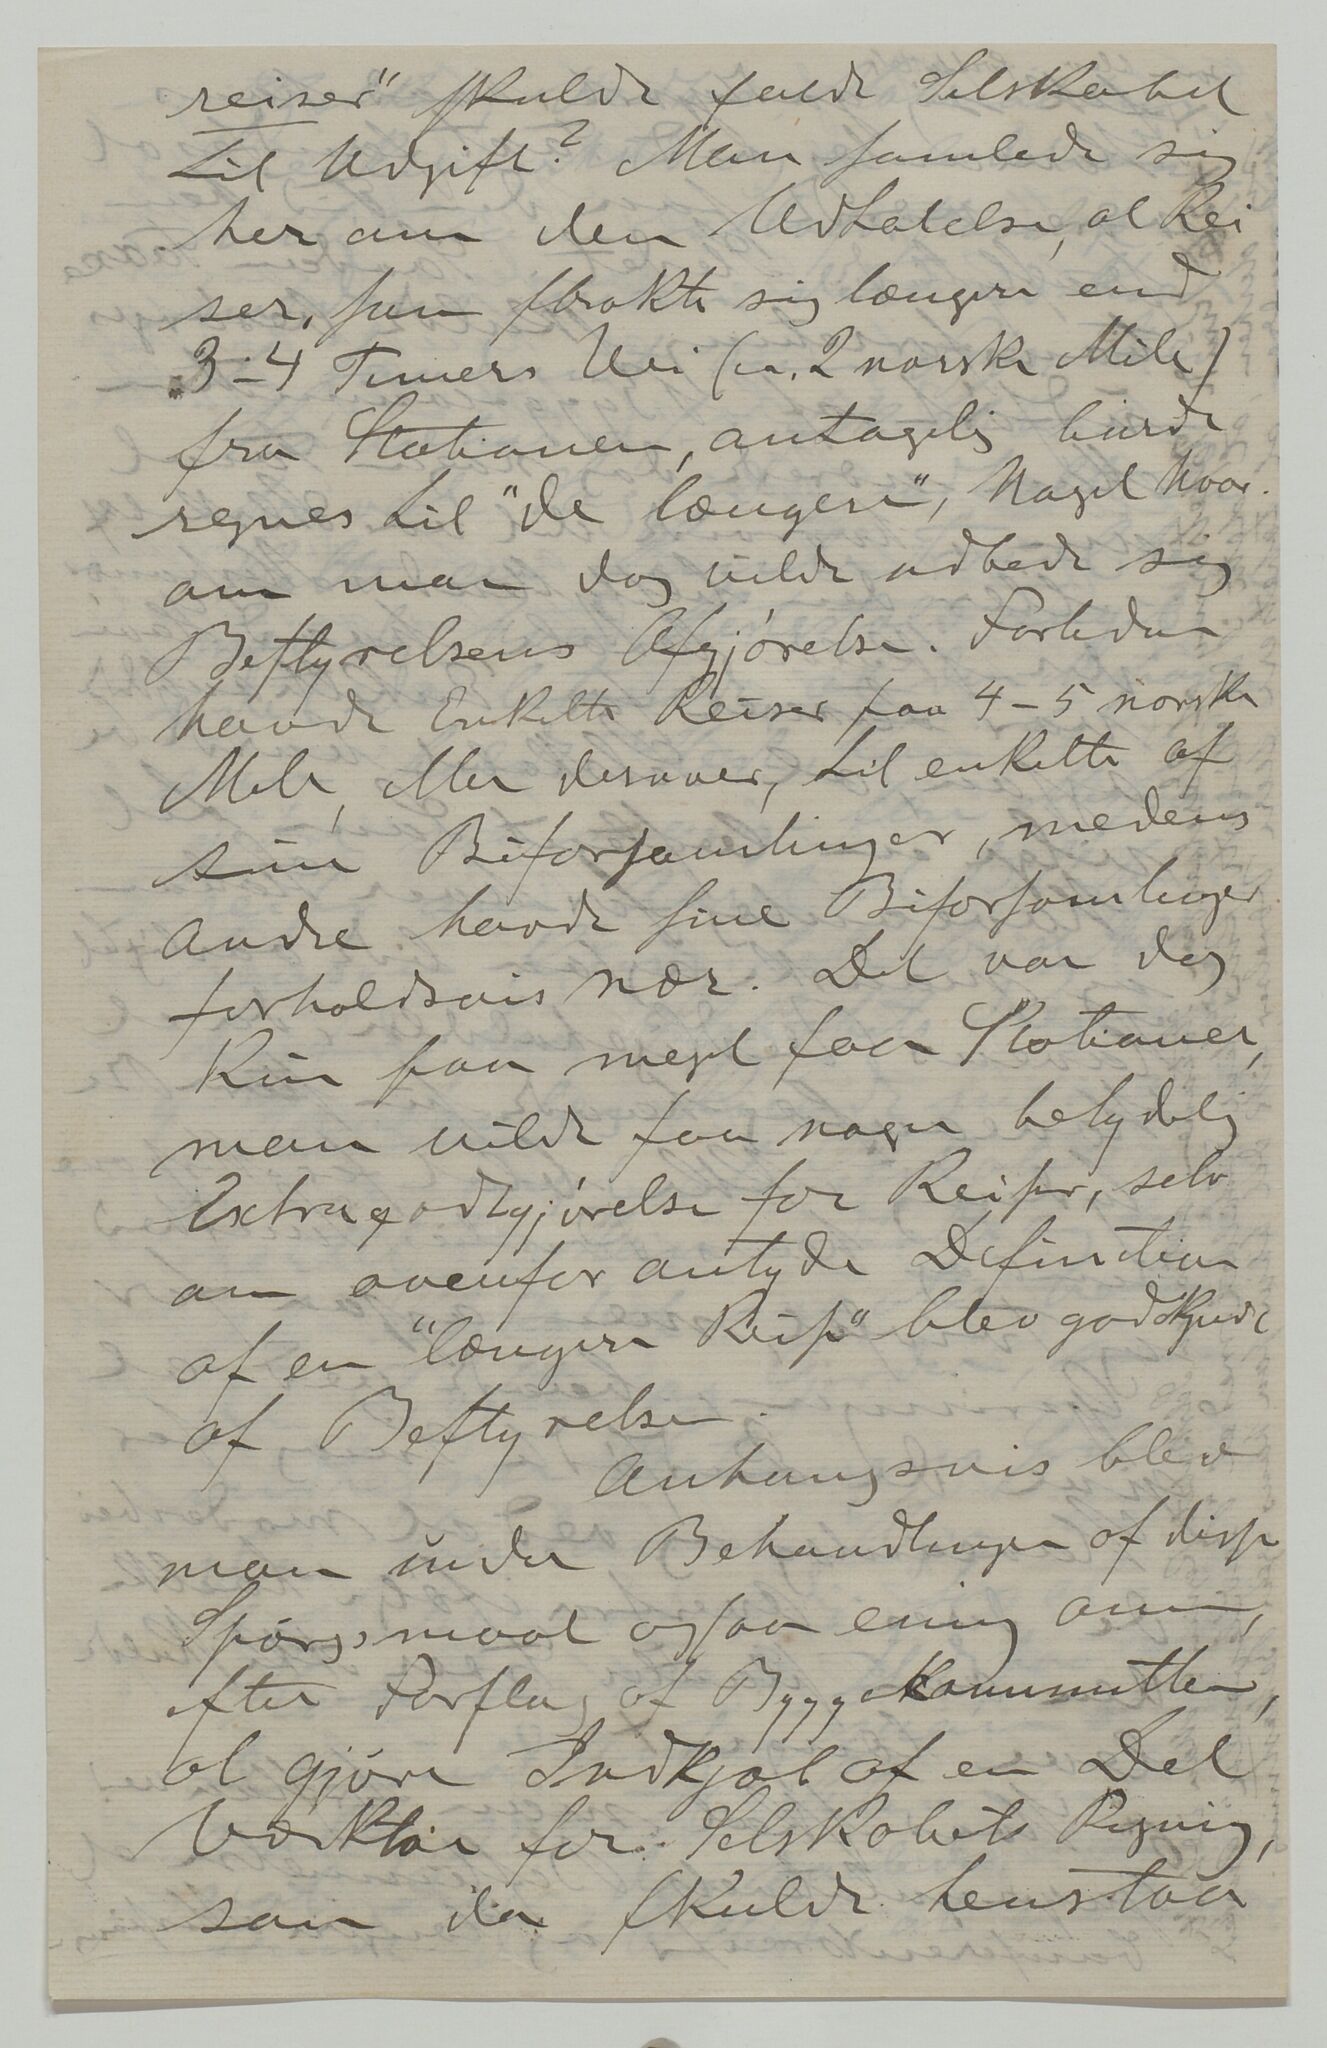 reiser" skulde falde Selskabet
til Udgift? Man samlede sig
her om den Udtalelse, at Rei
ser, som strakte sig længere end
3-4 Timers Vei (ca. 2 norske Mile)
fra Stationen, antagelig burde
regnes til "de længere", Noget hvor-
om man dog vilde udbede sig
Bestyrelsens Afgjørelse. Forleden
havde Enkelte Reiser paa 4-5 norske
Mile, eller derover, til enkelte af
sine Biforsamlinger, medens
Andre havde sine Biforsamlinger
forholdsvis nær. Det var dog
kun paa meget faa Stationer,
man vilde faa nogen betydelig
Extragodtgjørelse for Reiser, selv
om ovenfor antyde Definition
af en "længere Reise" blev godkjendt
af Bestyrelsen.
Anhangsvis blev
man under Behandlingen af disse
Spørgsmaal ogsaa enig om,
efter Forslag af Byggekommitteen,
at gjøre Indkjøb af en Del
Værktøi for Selskabets Regning,
som da skulde henstaa